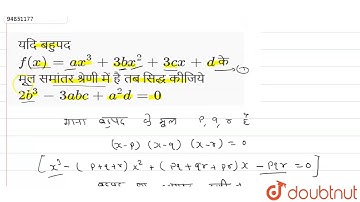 94631177
यदि बहुपद
f(x) = ax³ + 3bx² + 3cx + d के → ①
मूल समांतर श्रेणी में है तब सिद्ध कीजिये
2b³ − 3abc + a²d = 0
माना बहुपद के मूल p, q, r हैं
(x-p) (x-q) (x-r) = 0
[ x³ - ( p+q+r) x² + ( pq + qr + pr) x - pqr = 0 ]
doubtnut